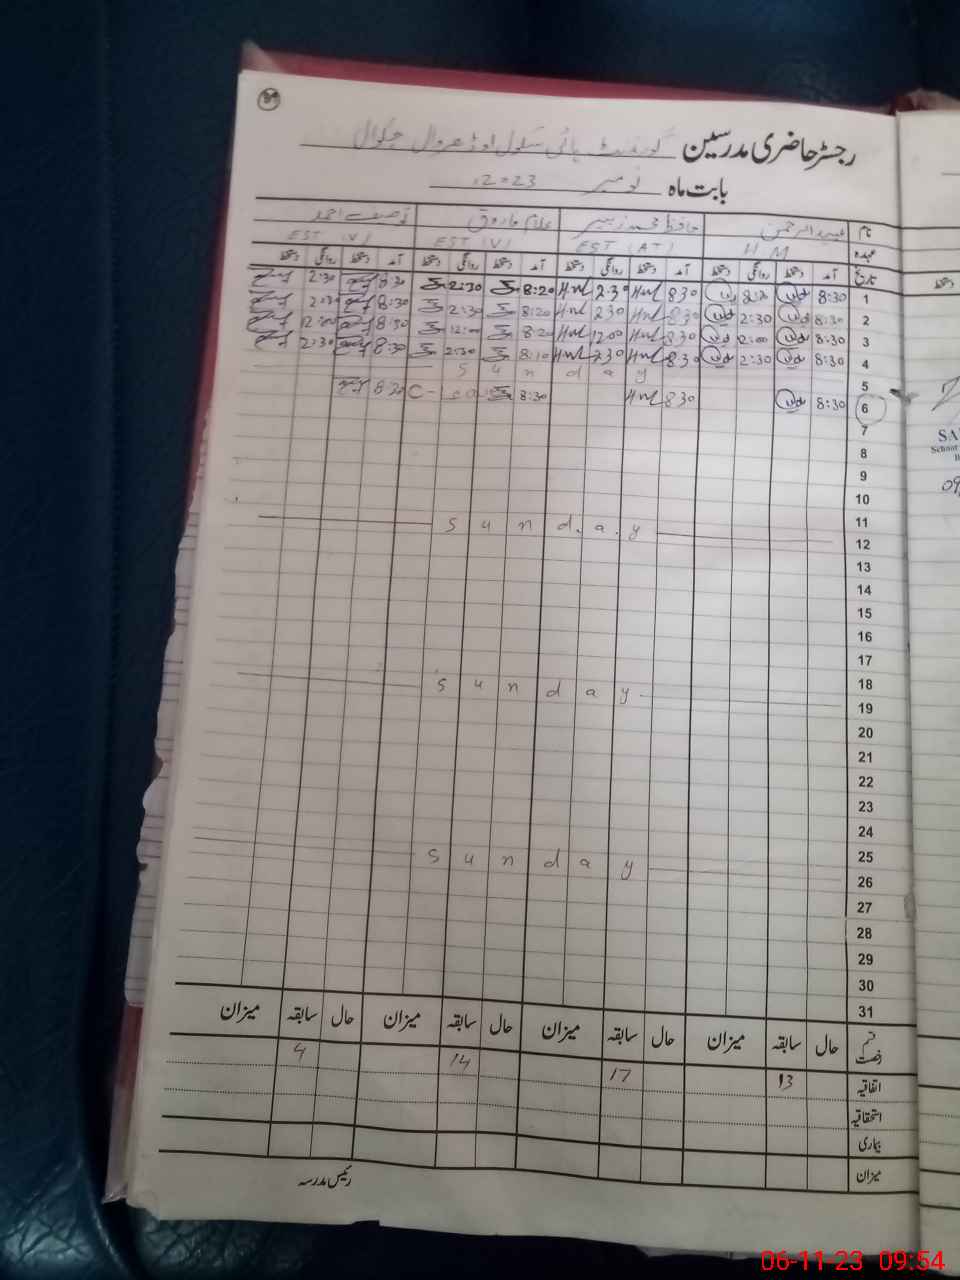 رجسٹر حاضری مدرسین گورنمنٹ ہائی سکول اوڈھروال چکوال
بابت ماہ نومبر 2023
نام عبیدالرحمن حافظ محمد زبیر غلام فاروق توصیف احمد
عہدہ H M EST (AT) EST (V) EST (V)
تاریخ آمد دستخط روانگی دستخط آمد دستخط روانگی دستخط آمد دستخط روانگی دستخط آمد دستخط روانگی دستخط
1 8:30 830 230 8:20 2:30 8:30 2:30
2 8:30 2:30 830 230 8:20 2:30 8:30 2:30
3 8:30 12:00 830 1200 8:20 12:00 8:30 12:00
4 8:30 2:30 830 230 8:10 2:30 8:30 2:30
5 Sunday
6 8:30 830 8:30 8:30
7
8
9
10
11
12 Sunday
13
14
15
16
17
18
19 Sunday
20
21
22
23
24
25
26 Sunday
27
28
29
30
31
قسم رخصت حال سابقہ میزان حال سابقہ میزان حال سابقہ میزان حال سابقہ میزان
اتفاقیہ 13 17 14 4
استحقاقیہ
بیماری
میزان
رئیس مدرسہ
SA
School
09
06-11-23 09:54